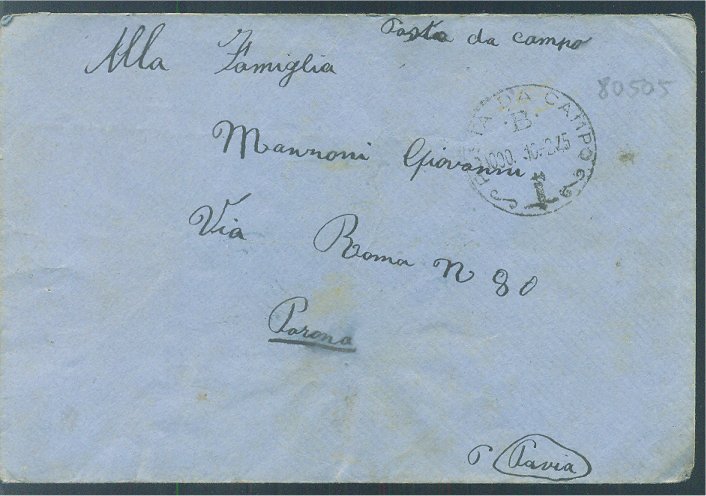 Posta da campo
Alla Famiglia
80505
POSTA DA CAMPO
B.
10-2.45
1
Mannoni Giovanni
Via Roma N 80
Parona
P Pavia